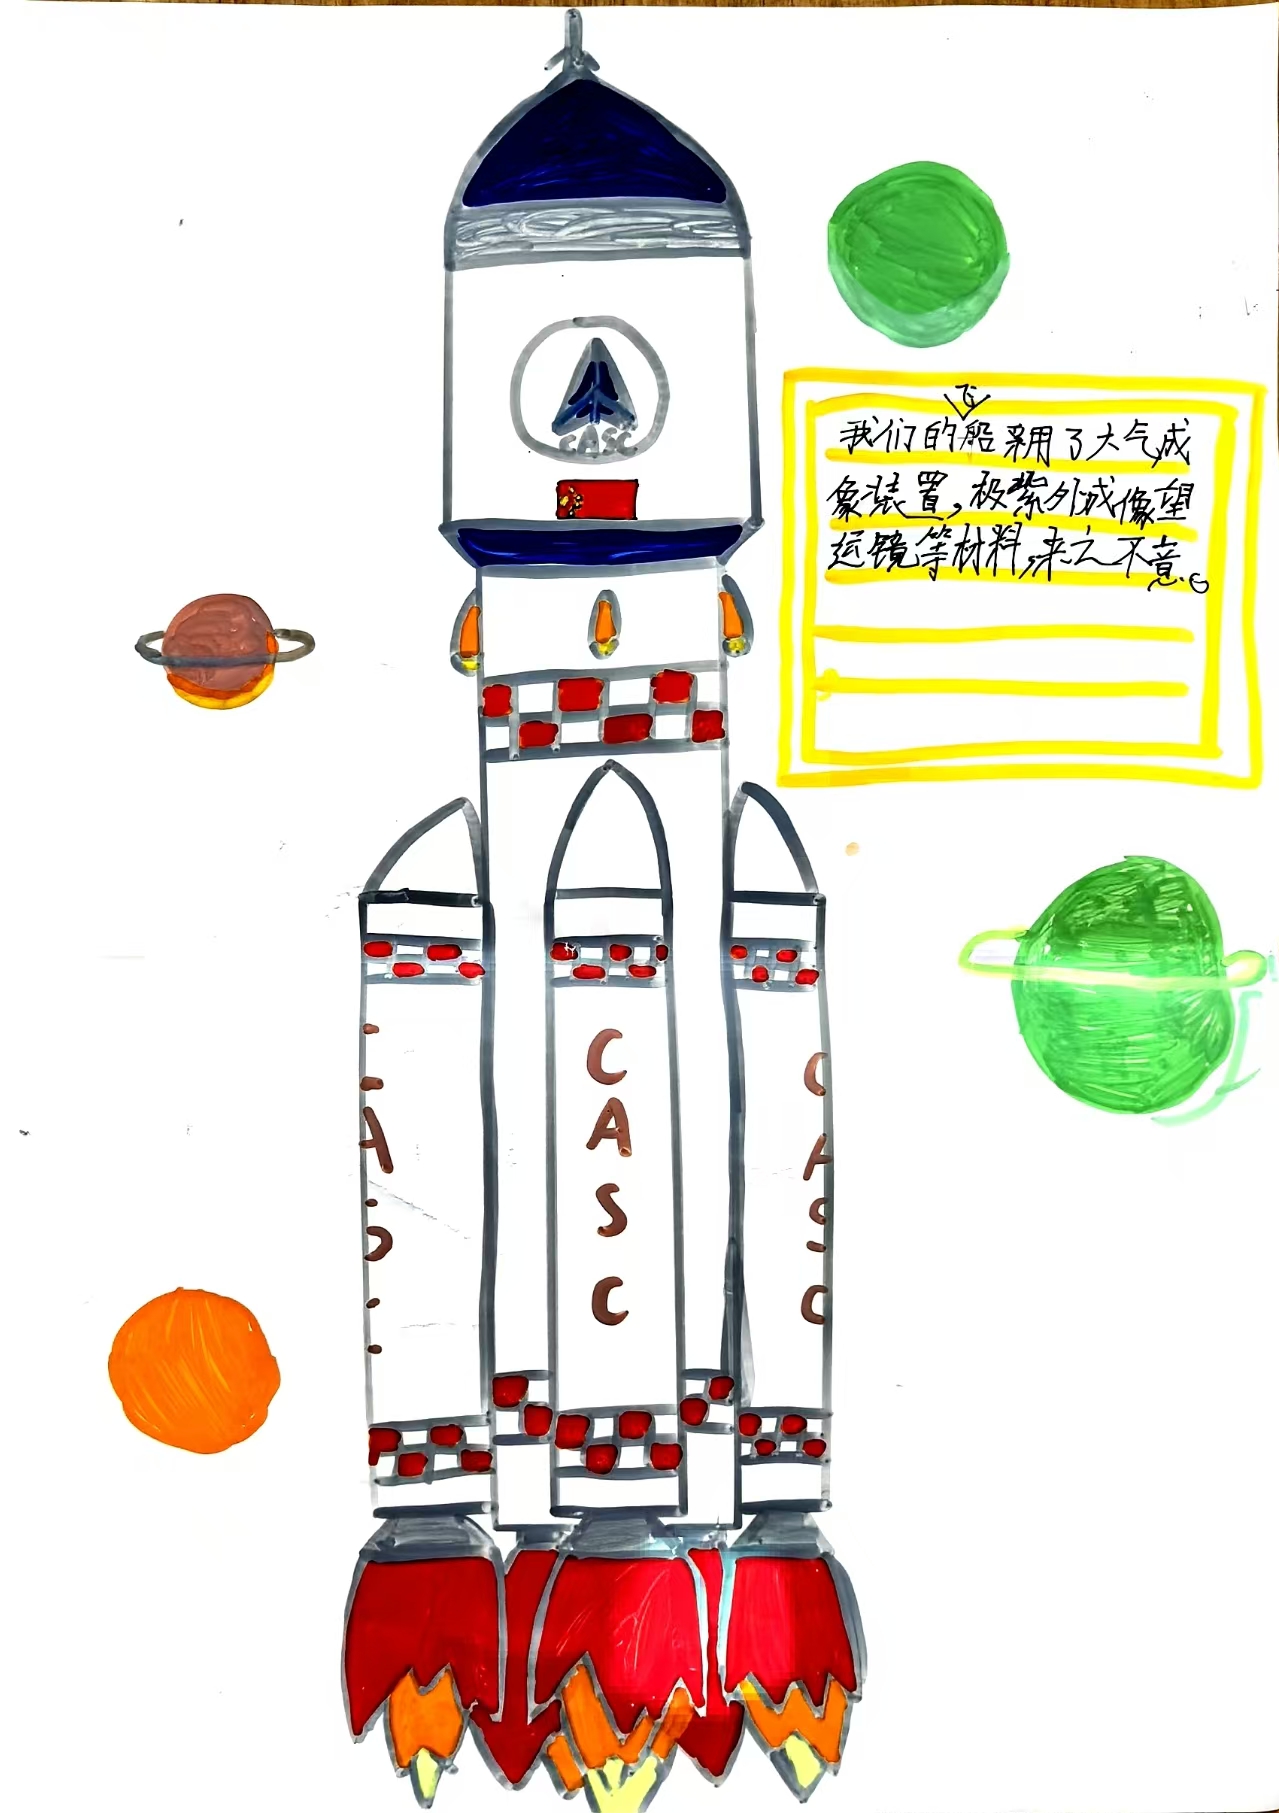 CASC
我们的飞船采用了大气成
象装置，极紫外成像望
远镜等材料，来之不意。
CASC
CASC